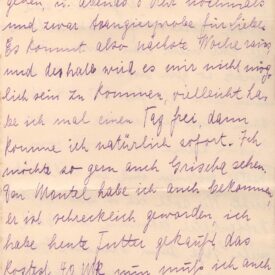 gehen, u. abends 8 Uhr nochmals
und zwar Arangierprobe für Liebe.
Es kommt also nächste Woche raus,
und deshalb wird es mir nicht mög-
lich sein zu kommen, vielleicht ha-
be ich mal einen Tag frei, dann
komme ich natürlich sofort. Ich
möchte so gern auch Grischa sehen.
Den Mantel habe ich auch bekommen,
er ist schrecklich geworden, ich
habe heute Futter gekauft, das
kostet 40 Mk nun muß ich auch